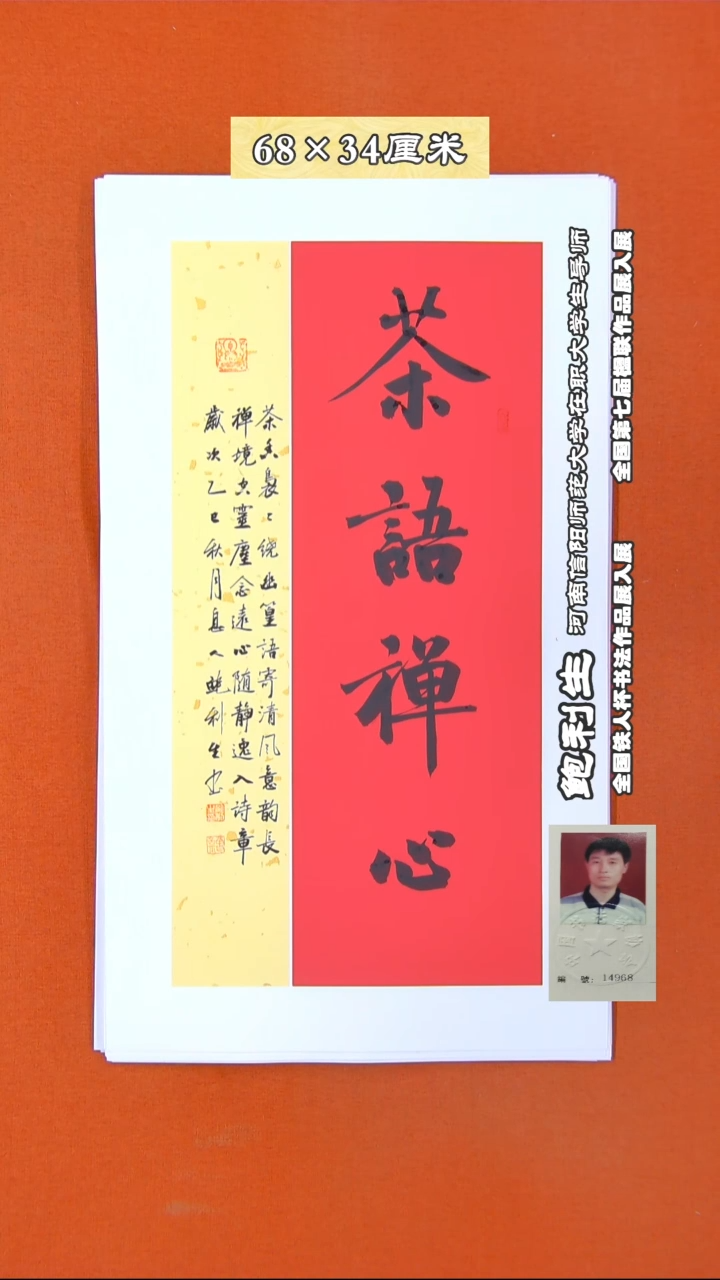 68×34厘米
茶語禅心
茶香裊裊繞幽篁語寄清风意韵長
禅境空靈塵念遠心随静逸入詩章
歲次乙巳秋月 鲍利生书
鲍利生 河南信阳师范大学在职大学生导师
全国第七届楹联作品展入展
全国铁人杯书法作品展入展
編 號: 14968